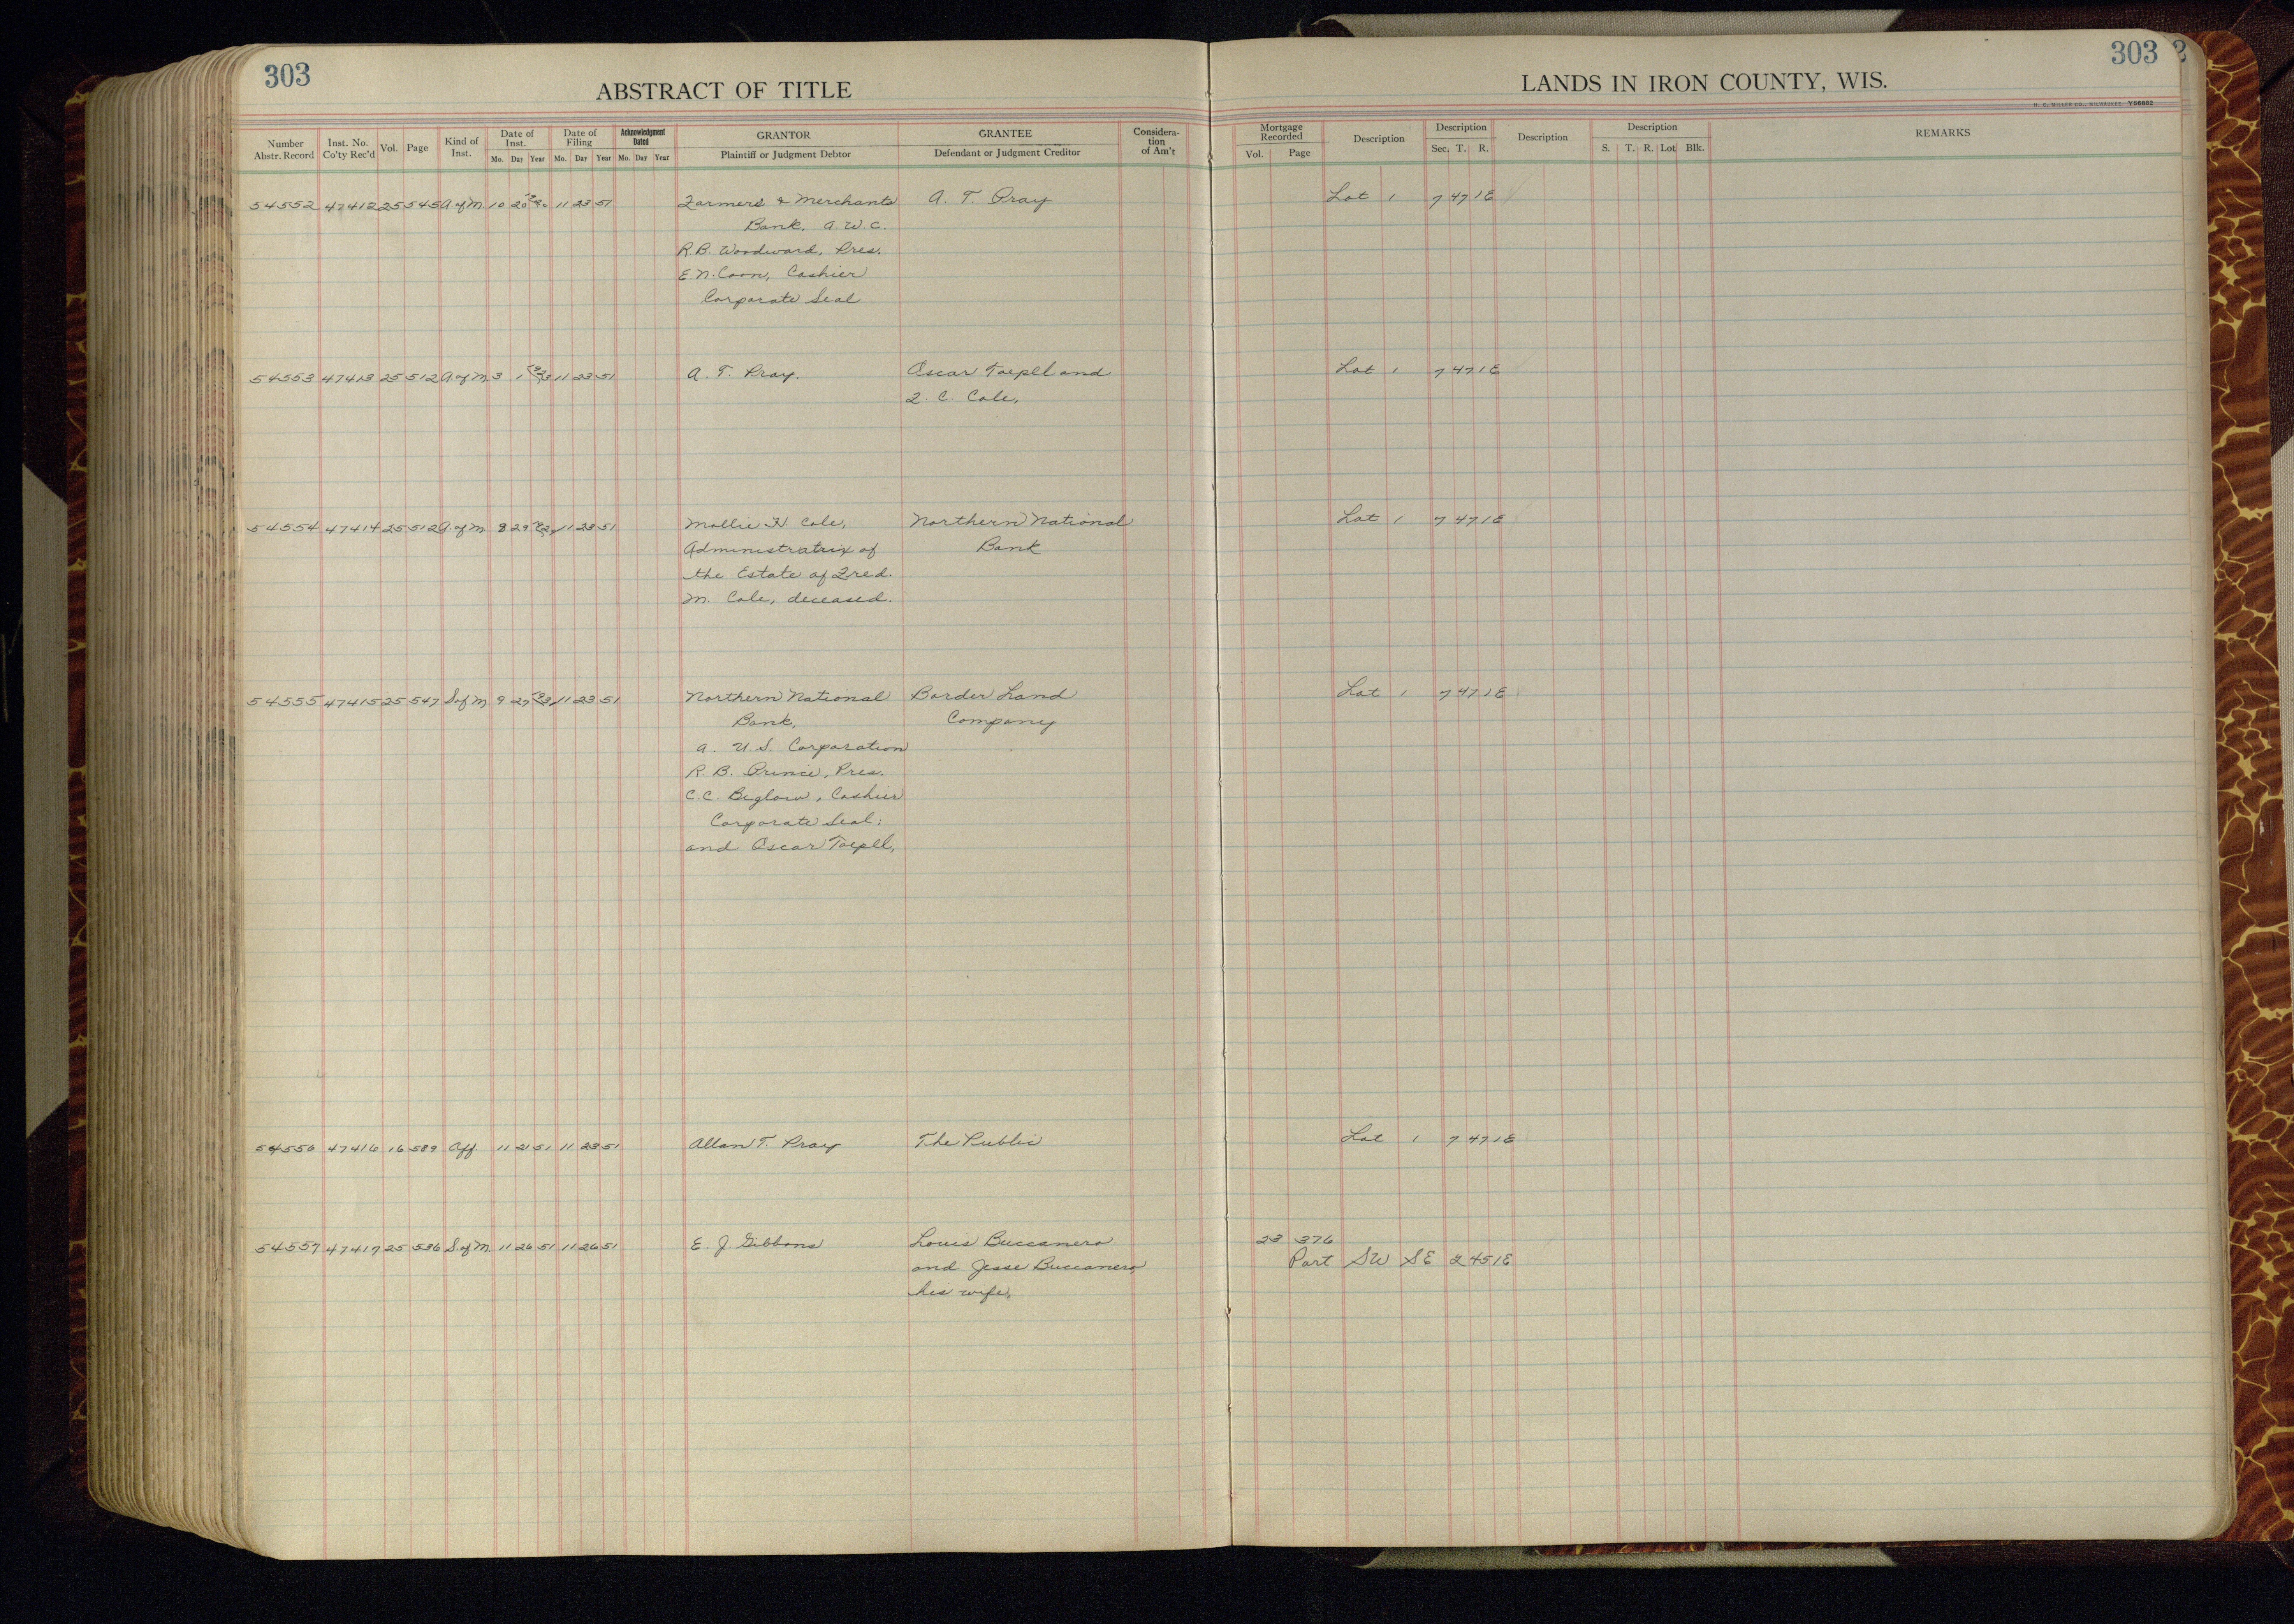 303
ABSTRACT OF TITLE
LANDS IN IRON COUNTY, WIS.
303
H. C. MILLER CO., MILWAUKEE Y56602
Number Abstr. Record Inst. No. Co'ty Rec'd Vol. Page Kind of Inst. Date of Inst. Mo. Day Year Date of Filing Mo. Day Year Acknowledgment Dated Mo. Day Year GRANTOR Plaintiff or Judgment Debtor GRANTEE Defendant or Judgment Creditor Considera-tion of Am't Mortgage Recorded Vol. Page Description Description Sec. T. R. Description Description S. T. R. Lot Blk. REMARKS
54552 47412 25 545 A of M 10 20 11 23 51 Farmers & Merchants A. T. Pray Lot 1 7 47 1E
Bank, a. W. C.
R. B. Woodward, Pres.
E. N. Coon, Cashier
Corporate Seal
54553 47413 25 512 A of M 3 1 11 23 51 A. T. Pray. Oscar Toepll and Lot 1 7 47 1E
F. C. Cole.
54554 47414 25 512 A of M 8 29 11 23 51 Mollie H. Cole, Northern National Lot 1 7 47 1E
Administratrix of Bank
the Estate of Fred.
M. Cole, deceased.
54555 47415 25 547 S of M 9 27 11 23 51 Northern National Border Land Lot 1 7 47 1E
Bank, Company
a. U.S. Corporation
R. B. Prince, Pres.
C. C. Biglow, Cashier
Corporate Seal:
and Oscar Toepll,
54556 47416 16 589 Aff. 11 21 51 11 23 51 Allan T. Pray The Public Lot 1 7 47 1E
54557 47417 25 536 S of M 11 26 51 11 26 51 E. J. Gibbons Louis Buccanero 23 376
and Jesse Buccanero, Part SW SE 2 45 1E
his wife,